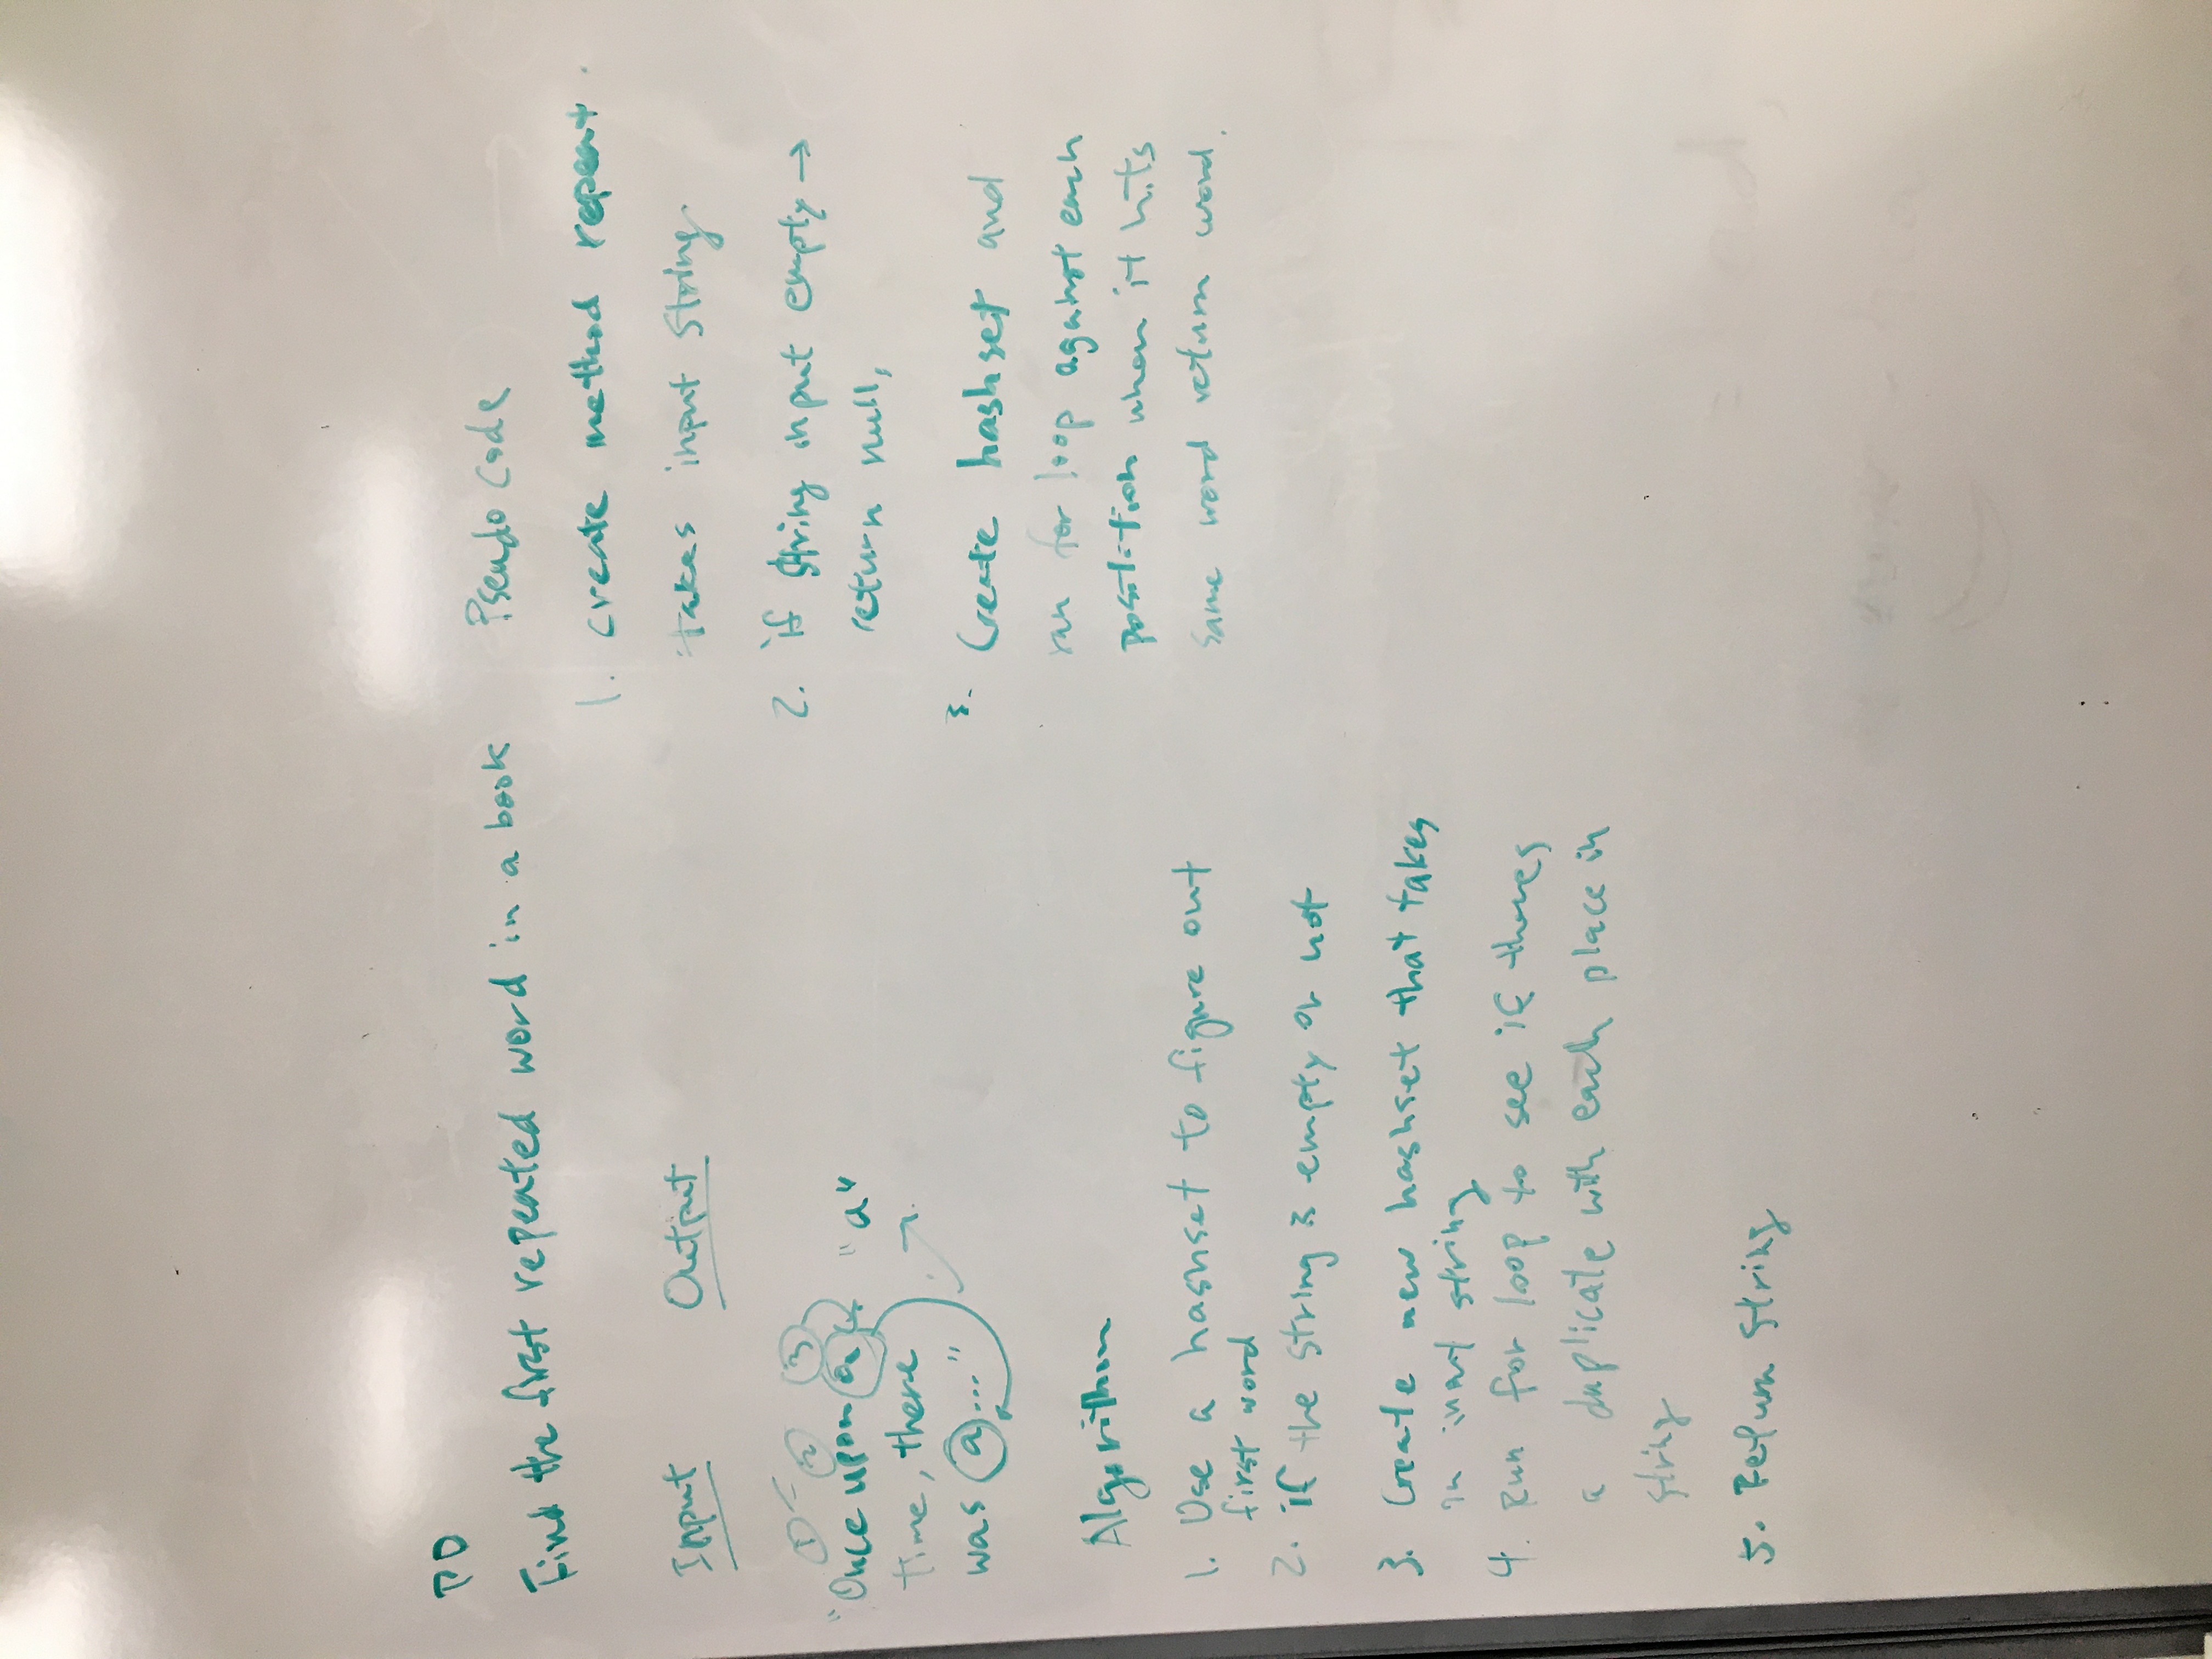 PD
Find the first repeated word in a book
Input Output
1 2 3
"Once upon a "a"
time, there
was a..."
Algorithm
1. Use a hashset to figure out
first word
2. if the string is empty or not
3. Create new hashset that takes
in input string
4. Run for loop to see if theres
a duplicate with each place in
string
5. Return string
Pseudo code
1. create method repeat.
takes input string.
2. if string input empty →
return null,
3. Create hashset and
run for loop against each
position when it hits
same word return word.